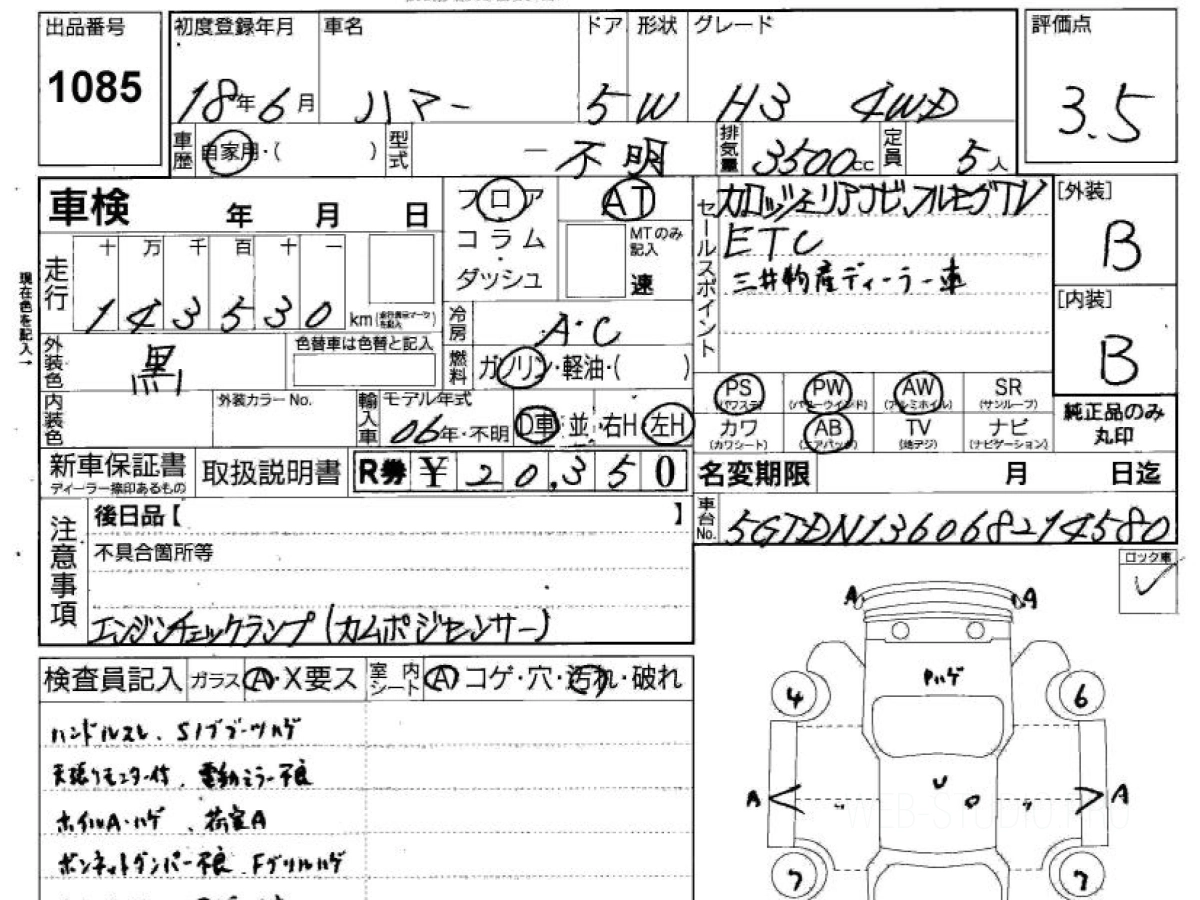 出品番号
1085
初度登録年月 車名 ドア 形状 グレード
18年6月 ハマー 5 W H3 4WD
評価点
3.5
車歴 自家用・( ) 型式 ー不明 排気量 3500cc 定員 5人
車検 年 月 日
フロア
コラム
ダッシュ
AT
MTのみ記入
速
現在色を記入→
走行 十 万 千 百 十 一
143530 km
冷房 A・C
燃料 ガソリン・軽油・( )
外装色 黒
色替車は色替と記入
内装色
外装カラーNo.
輸入車 モデル年式
06年・不明 D車・並 右H・左H
セールスポイント
カロッツェリアナビ、フルセグTV
ETC
三井物産ディーラー車
[外装]
B
[内装]
B
PS PW AW SR
(パワステ) (パワーウインド) (アルミホイル) (サンルーフ)
カワ AB TV ナビ
(カワシート) (エアバッグ) (地デジ) (ナビゲーション)
純正品のみ
丸印
新車保証書
ディーラー捺印あるもの
取扱説明書
R券 ¥20,350
名変期限 月 日迄
車台No. 5GTDN136068214580
注意事項
後日品【 】
不具合箇所等
エンジンチェックランプ(カムポジセンサー)
ロック車
✓
検査員記入 ガラス A・X要ス 室内シート A コゲ・穴・汚れ・破れ
ハンドルスレ、S/ブブーツハゲ
天張りモニター付、電動ミラー不良
ホイルA・ハゲ、荷室A
ボンネットダンパー不良、Fグリルハゲ
A A
Pハゲ
4 6
U
A A
7 7